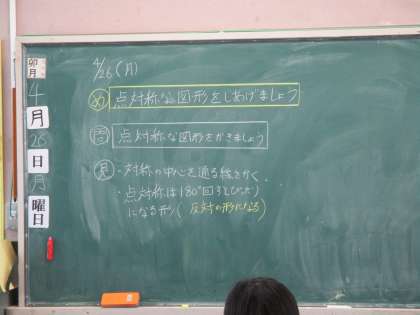 卯月
4
月
26
日
月
曜日
4/26(月)
め 点対称な図形をしあげましょう
問 点対称な図形をかきましょう
見 ・対称の中心を通る線をかく。
・点対称は180°回すとぴったり
になる形(反対の形になる)